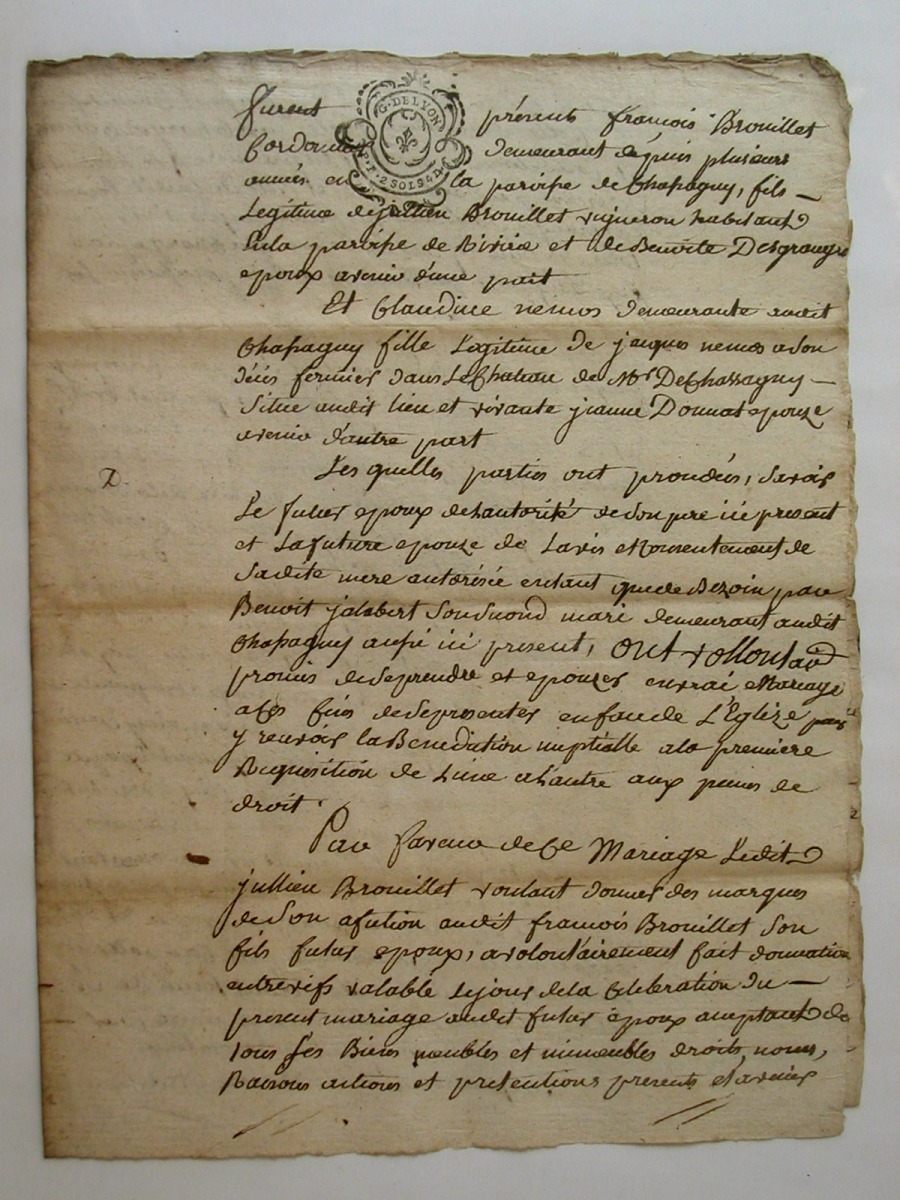 furent présents francois Brouillet
Cordonnier demeurant depuis plusieurs
années en la paroisse de Chassagny, fils
Legitime de jullien Brouillet vigneron habitant
En la paroisse de Riviere et de Benoite Desgranges
epoux avenir d'une part
Et Claudine nemos demeurante audit
Chassagny fille Legitime de jacques nemos a son
déces fermier dans Le Chateau de Mr. De Chassagny
Situé audit lieu et vivante jeanne Donnat epouze
avenir d'autre part
Les quelles parties ont procédés, Savoir
Le futur epoux de L'autorité de Son pere ici present
et La future epouze de L'avis et Consentement de
Sadite mere autorisée entant que de Bezoin par
Benoit jalabert Son Second mari demeurant audit
Chassagny aussi ici present, ont vollontair
promis de Se prendre et epouzer en vrai Mariage
a Ces fins de Se presenter en face de L'Eglize pour
y recevoir la Benediction nuptialle a la premiere
Requisition de L'une a L'autre aux peines de
droit.
Par faveur de Ce Mariage Ledit
jullien Brouillet voulant donner des marques
de Son afection audit francois Brouillet Son
fils futur epoux, a volontairement fait donnation
entre vifs valable Le jour de la Celebration du
present mariage audit futur epoux acceptant de
tous Ses Biens meubles et immeubles droits noms,
Raisons actions et pretentions presents et avenir
G. DE LYON
2 SOLS 4 D.